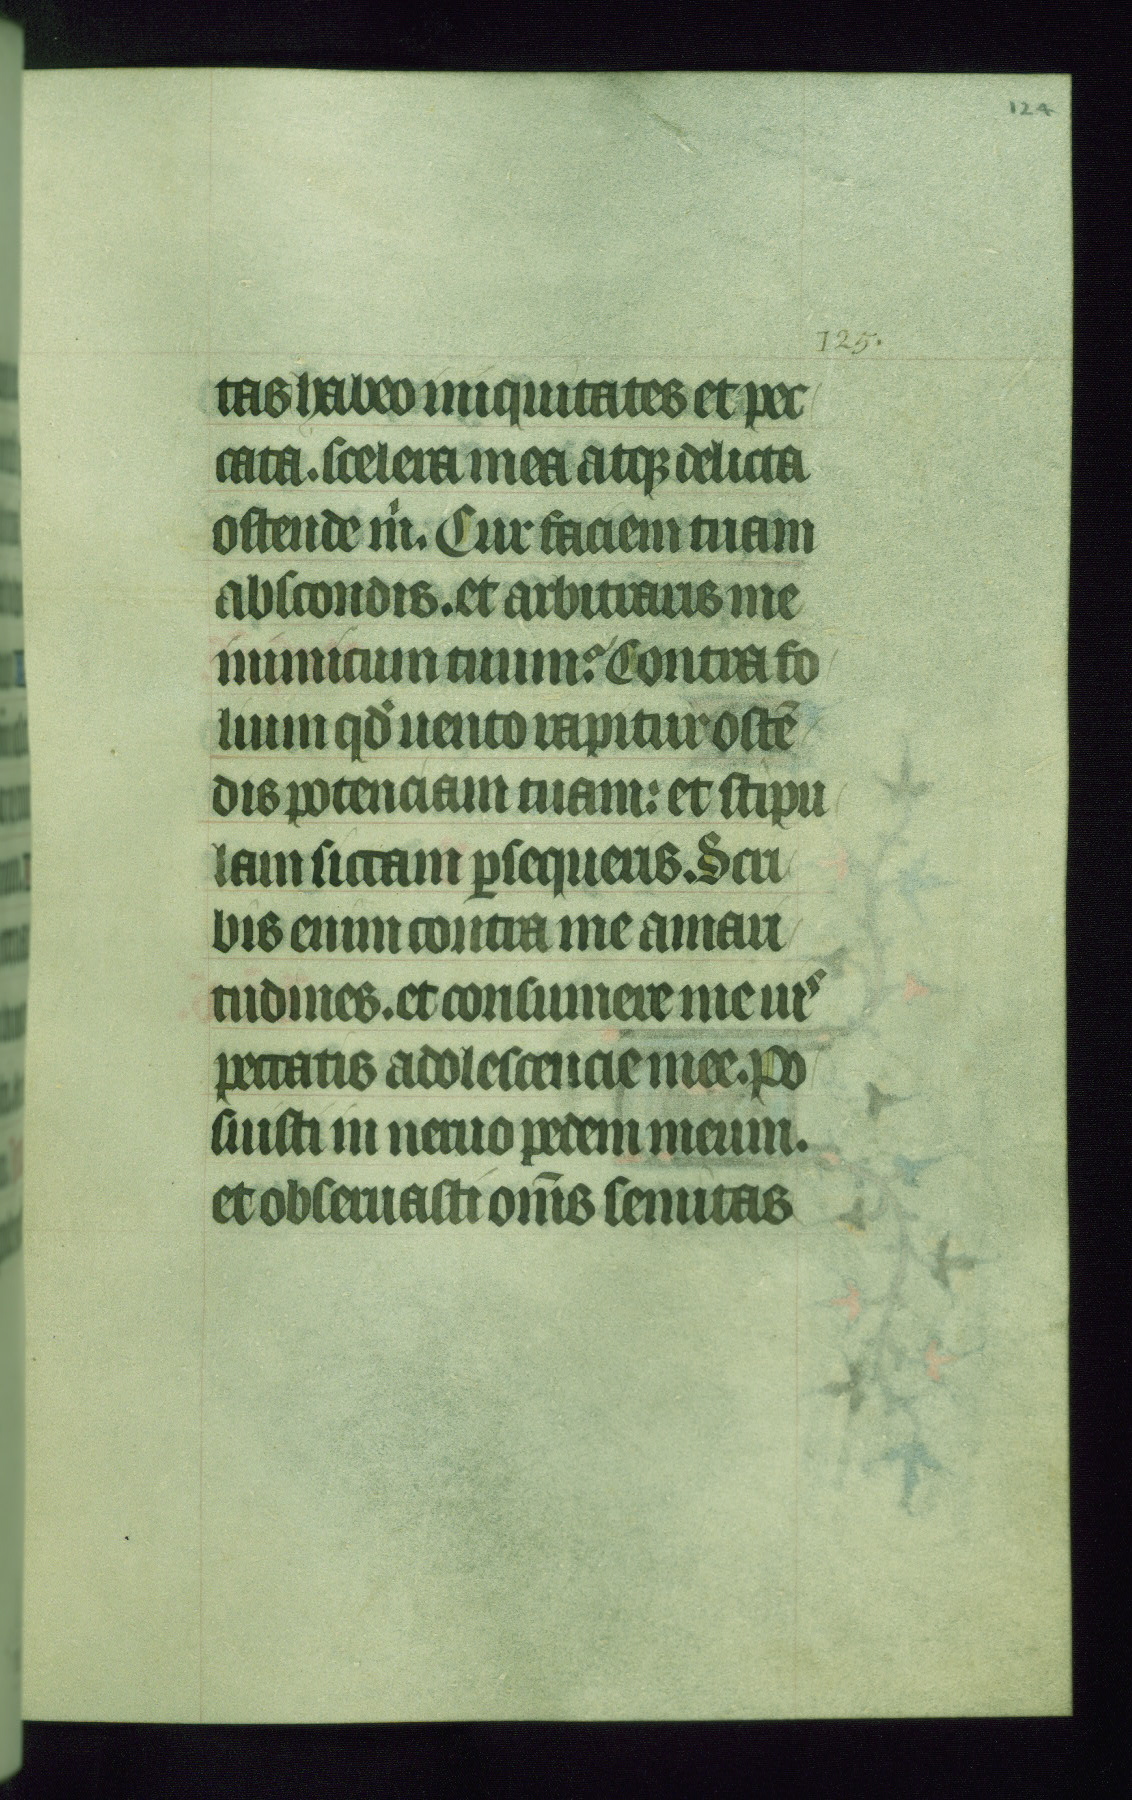 124
125.
tas habeo iniquitates et pec
cata. scelera mea atqꝫ delicta
ostende m̍. Cur faciem tuam
abscondis. et arbitraris me
inimicum tuum? Contra fo
lium qd̓ uento rapitur ostē
dis potenciam tuam: et stipu
lam siccam ꝑsequeris. Scri
bis enim contra me amari
tudines. et consumere me uis
peccatis adolescencie mee. Po
suisti in neruo pedem meum.
et obseruasti om̄s semitas